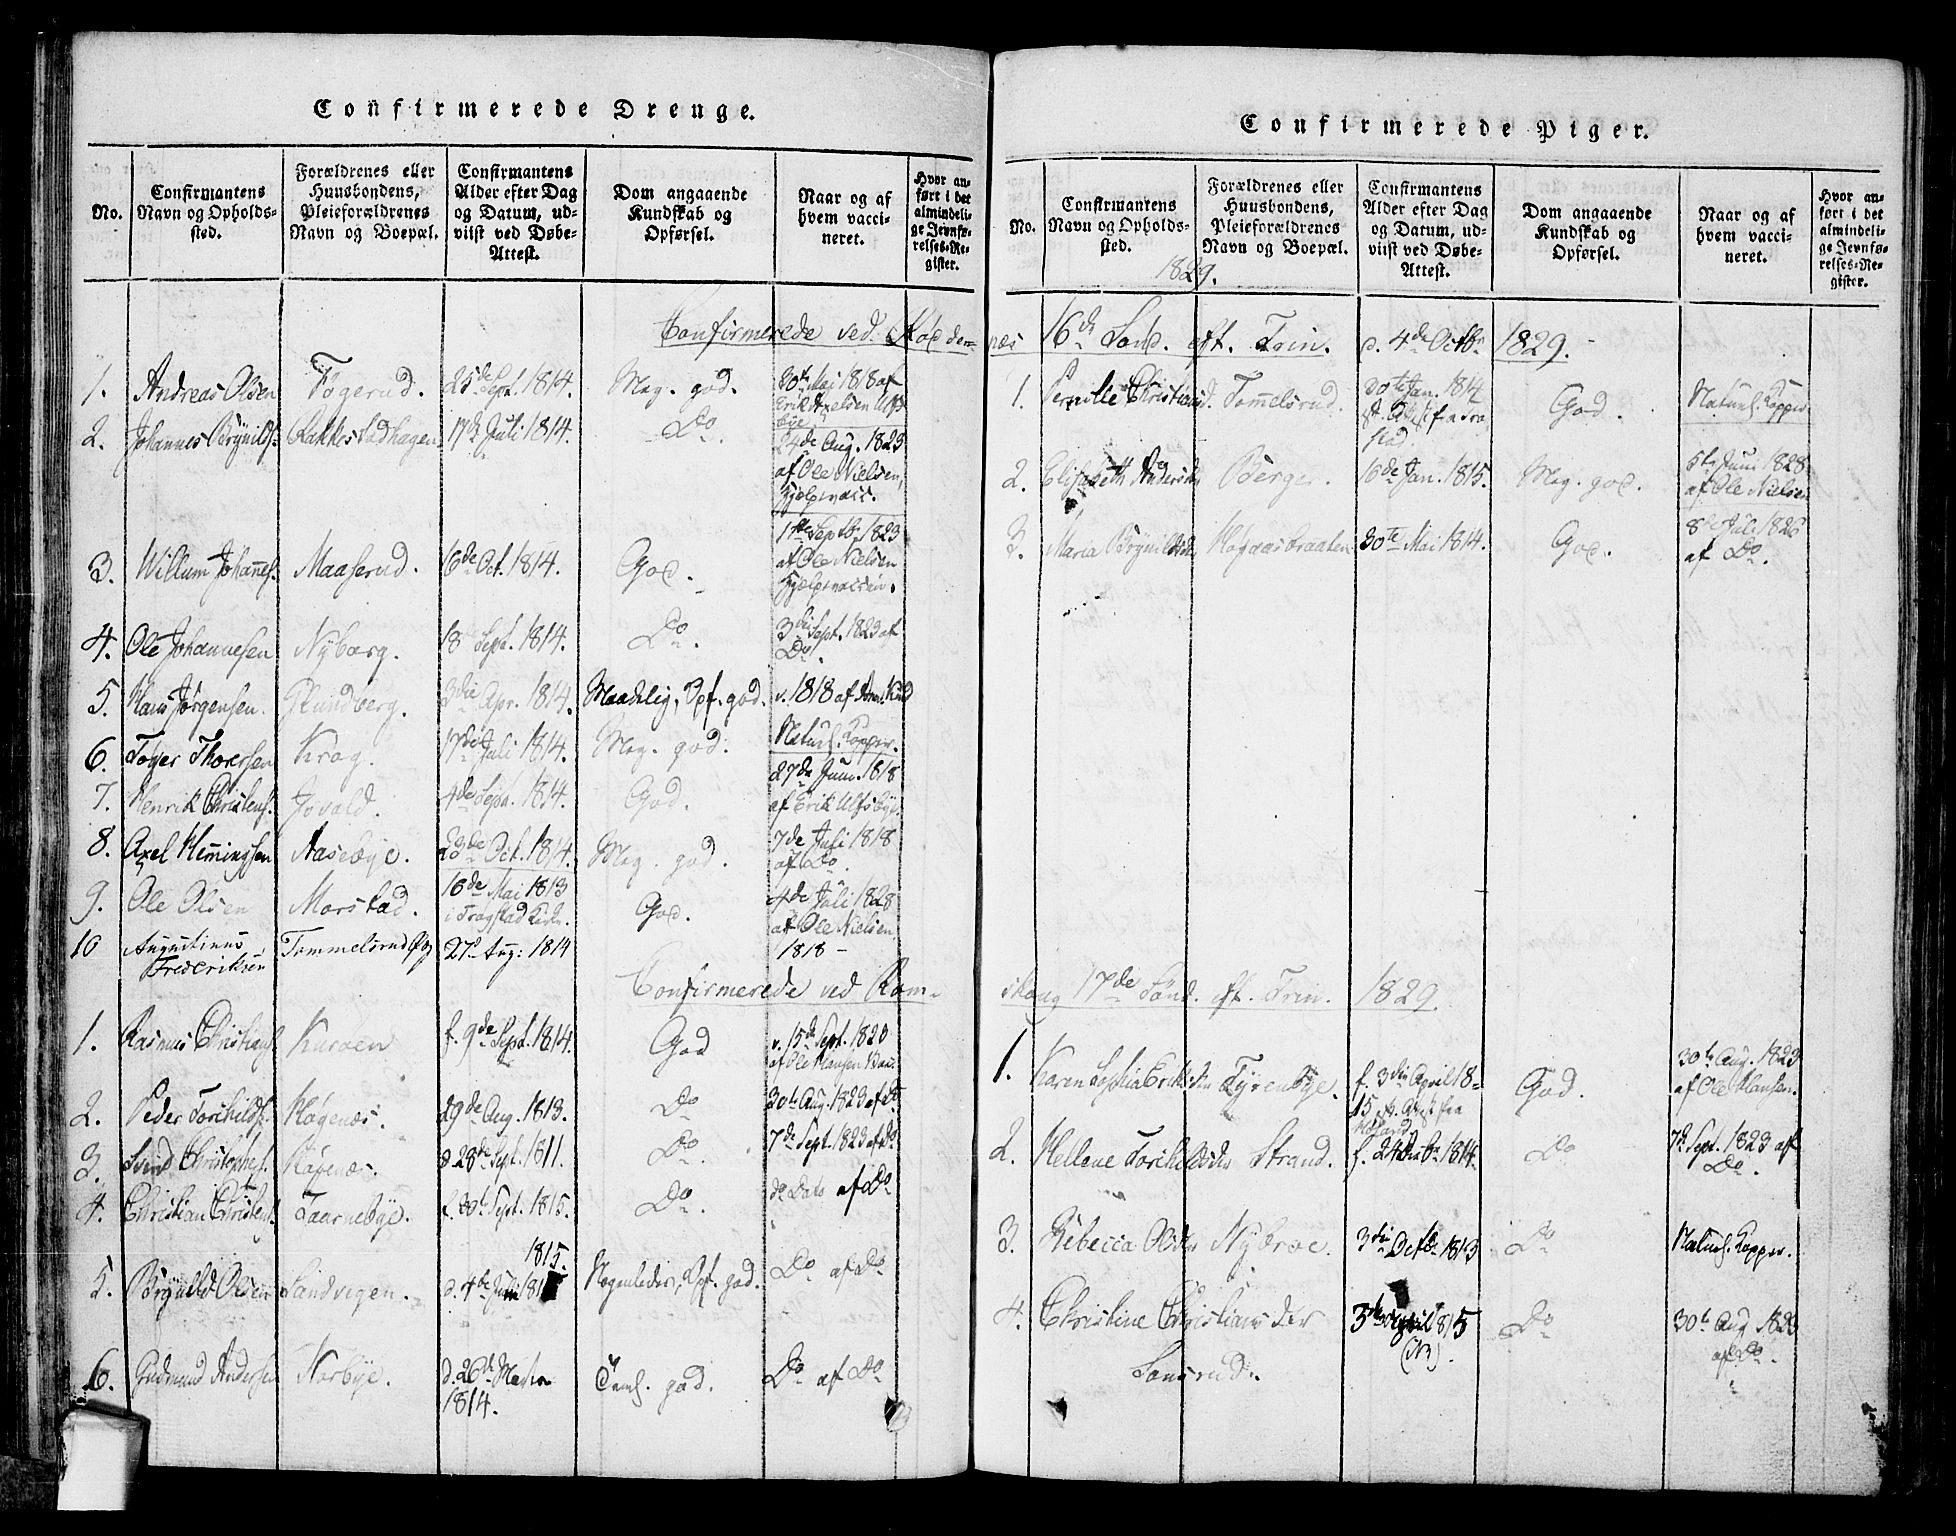 Confirmerede Drenge.
No.
Confirmantens Navn og Opholds-sted.
Forældrenes eller Huusbondens, Pleieforældrenes Navn og Boepæl.
Confirmantens Alder efter Dag og Datum, ud-viist ved Døbe-Attest.
Dom angaaende Kundskab og Opførsel.
Naar og af hvem vacci-neret.
Hvor an-ført i det almindeli-ge Jevnfø-relses-Re-gister.
Confirmerede ved
1. Andreas Olsen Togerud. 25de Sept. 1814. Meg. god. 30te Mai 1818 af Erik Axelsen Ulfsbye
2. Johannes Brynilds. Rakkestadhagen 17de Juli 1814. Do 24de Aug. 1823 af Ole Nielsen, Hjelpevacc.
3. Willum Johannes. Maaserud. 16de Oct. 1814. God. 1ste Septb. 1823 af Ole Nielsen
4. Ole Johannesen Nyborg. 18 Sept. 1814. Do. 3die Sept. 1823 af Do.
5. Hans Jørgensen. 3die Apr. 1814. Maadelig, Opf. god. v. 1818 af
6. Toger Thoresen Krog. 17de Juli 1814. Meg. god. Naturl. Kopper.
7. Henrik Christens. 4de Sept. 1814. God. 27de Juni 1818 af Erik Ulfsbye.
8. Axel Hemingsen Aasebye. 23de Oct. 1814. Meg. god. 7de Juli 1818 af Do.
9. Ole Olsen Morstad. 16de Mai 1813 i Trøgstad Kirke. God. 4de Juli 1828 af Ole Nielsen.
10 Augustinus Frederiksen Tommelsrud 27. Aug: 1814 1818 –
Confirmerede ved Røm-
1. Rasmus Christians. Kurøen f. 9de Sept. 1814. God v. 15de Sept. 1820 af Ole Hansen
2. Peder Torchilds. Høgenæs. 29de Aug. 1813. Do 30te Aug. 1823 af Do
3. Svend Christophers. 28de Sept. 1811. Do. 7de Sept. 1823 af Do
4. Christian Christens. Taarnebye. f. 30te Sept. 1815. Do. do Dato af Do
5. Brynild Olsen Sandvigen. d. 4de Juli 1815. Opf. god. Do af Do
6. Gudmund Andersen Norbye. d. 26de Martz 1814. Teml. god. Do af Do
Confirmerede Piger.
No.
Confirmantens Navn og Opholds-sted.
Forældrenes eller Huusbondens, Pleieforældrenes Navn og Boepæl.
Confirmantens Alder efter Dag og Datum, ud-viist ved Døbe-Attest.
Dom angaaende Kundskab og Opførsel.
Naar og af hvem vacci-neret.
Hvor an-ført i det almindeli-ge Jevnfø-relses-Re-gister.
1829.
næs 16de Sønd. eft. Trin. d. 4de Octbr 1829.
1. Pernille Christiansd. Tommelsrud. 30te Jan. 1814 God. Naturl. Kopper
2. Elisabeth Andersdr Berger. 16de Jan. 1815. Meg. god. 5te Juni 1828 af Ole Nielsen
3. Maria Brynildsdr. Høgnæsbraaten 30te Mai 1814. God. 8de Juli 1826 af Do.
skoug 17de Sønd. eft. Trin. 1829.
1. Karen Sophia Eriksdr Tyrenbye. f. 3die April 1815 God. 30te Aug. 1823 af Ole Hansen.
2. Hellene Torchildsdr Strand. f. 24de 1814. Do 7de Sept. 1823 af Do.
3. Rebecca Olsdr Nybroe. 3die 1813 Do Naturl. Kopper.
4. Christine Christiansdr Sonsrud. 3die April 1815 (NB). Do 30te Aug 1823 af Do.